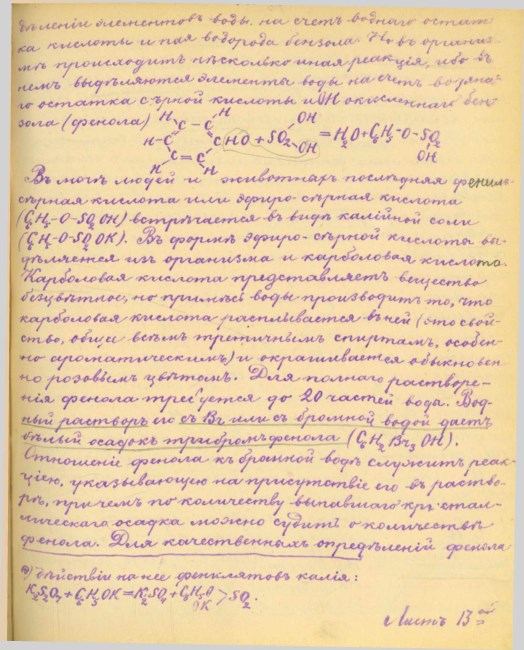 дѣленіи элементовъ воды на счетъ воднаго остат-
ка кислоты и пая водорода бензола. Но въ организ-
мѣ происходитъ нѣсколько иная реакція, ибо въ
немъ выдѣляются элементы воды на счетъ водяна-
го остатка сѣрной кислоты и ОН окисленнаго бен-
зола (фенола)
H C – C H H–C C H C = C H H CHO + SO2 OH OH = H2O + C6H5–O–SO2 OH
Въ мочѣ людей и животныхъ послѣдняя фенилъ-
сѣрная кислота или эфиро-сѣрная кислота
(C6H5–O–SO2OH) встрѣчается въ видѣ калійной соли
(C6H5–O–SO2OK). Въ формѣ эфиро-сѣрной кислоты вы-
дѣляется изъ организма и карболовая кислота.
Карболовая кислота представляетъ вещество
безцвѣтное, но примѣсь воды производитъ то, что
карболовая кислота расплывается въ ней (это свой-
ство, общее всѣмъ третичнымъ спиртамъ, особен-
но ароматическимъ) и окрашивается обыкновен-
но розовымъ цвѣтомъ. Для полнаго растворе-
нія фенола требуется до 20 частей воды. Вод-
ный растворъ его съ Br или съ бромной водой даетъ
бѣлый осадокъ трибромъфенола (C6H2Br3OH).
Отношеніе фенола къ бромной водѣ служитъ реак-
ціею, указывающею на присутствіе его въ раство-
рѣ, при чемъ по количеству выпавшаго кристал-
лическаго осадка можно судить о количествѣ
фенола. Для качественныхъ опредѣленій фенола
дѣйствіи на нее фенилятовъ калія:
K2S2O7 + C6H5OK = K2SO4 + C6H5O OK > SO2.
Листъ 13 ый